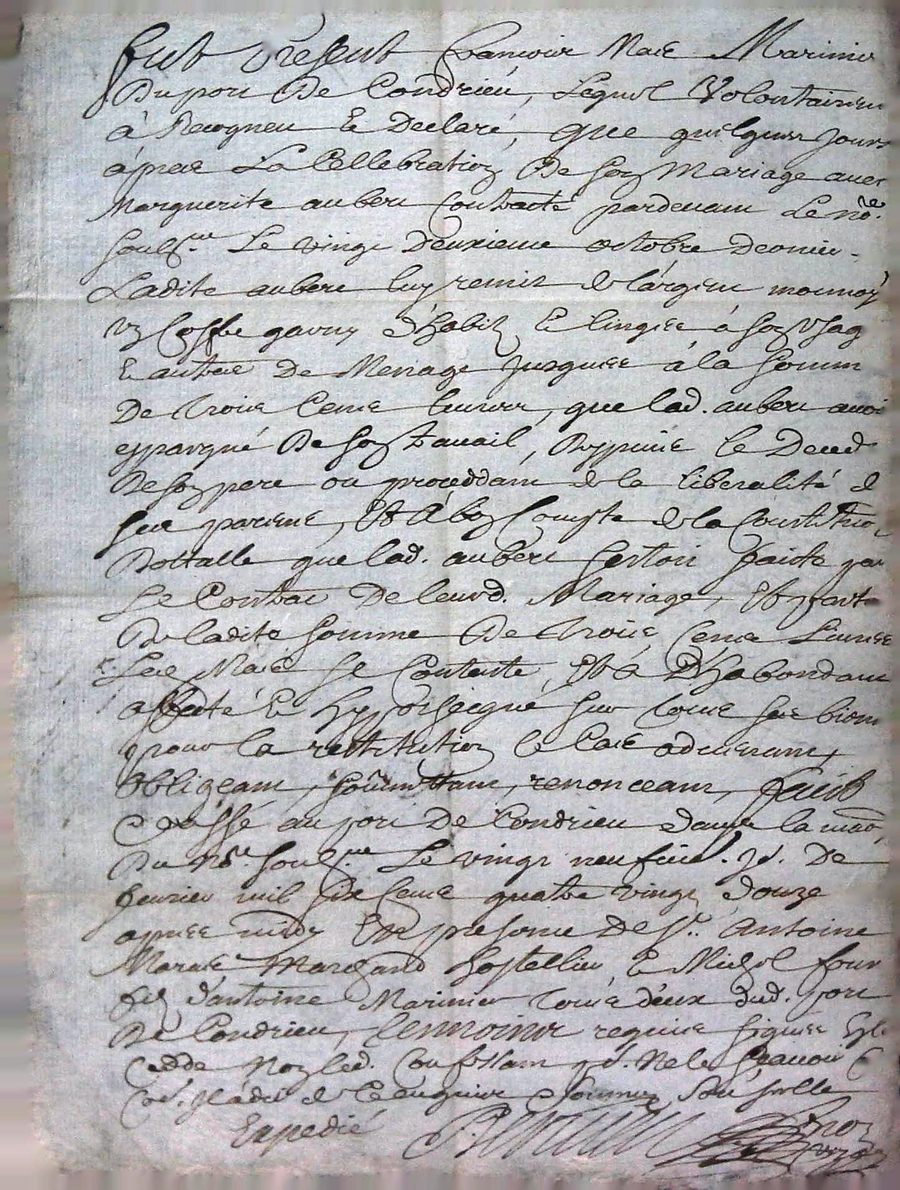 fut present francoise Mare Marinier
Du port De Condrieu, Lequel Volontairem
à Recogneu Et Declaré, que quelques jours
apres La Cellebration De son Mariage avec
Marguerite aubert Contracté pardevant Le no.re
soubs.né Le vingt deuxieme octobre Dernier
Ladite aubert luy remit de l'argent monnoyé
un Coffre garny d'habitz Et linges à son usag
Et autres De Menage jusques à la somm
De Trois Cens livres, que lad. aubert avoi
espargné De son travail, Depuis le Deced
De son pere ou proceddant de la liberalité d
ses parens, Et à bon Compte de la Constitutio
Dottalle que lad. aubert s'estoit faicte par
Le Contract De leurd. Mariage, Et part
De ladite somme De Trois Cens Livres
Led. Mare se Contente, Et a D'habondant
affecté Et hypothecqué sur tous ses biens
pour la restitution le Cas advenant,
Obligeant, soûmettant, renonceant, faict
Et passé au port De Condrieu dans la mai.on
Du No.re soubs.né Le vingt neufvie. jo. De
febvrier mil six cens quatre vingt douze
apres midy En presence De S.r Antoine
Marchand hostellier Et Michel four
filz d'antoine Marinier tous deux dud. port
De Condrieu, tesmoins requis signes
Cedde Non led. Confessant p.t Ne le sçavoir
de Ce enquis Et sommé
Expedié